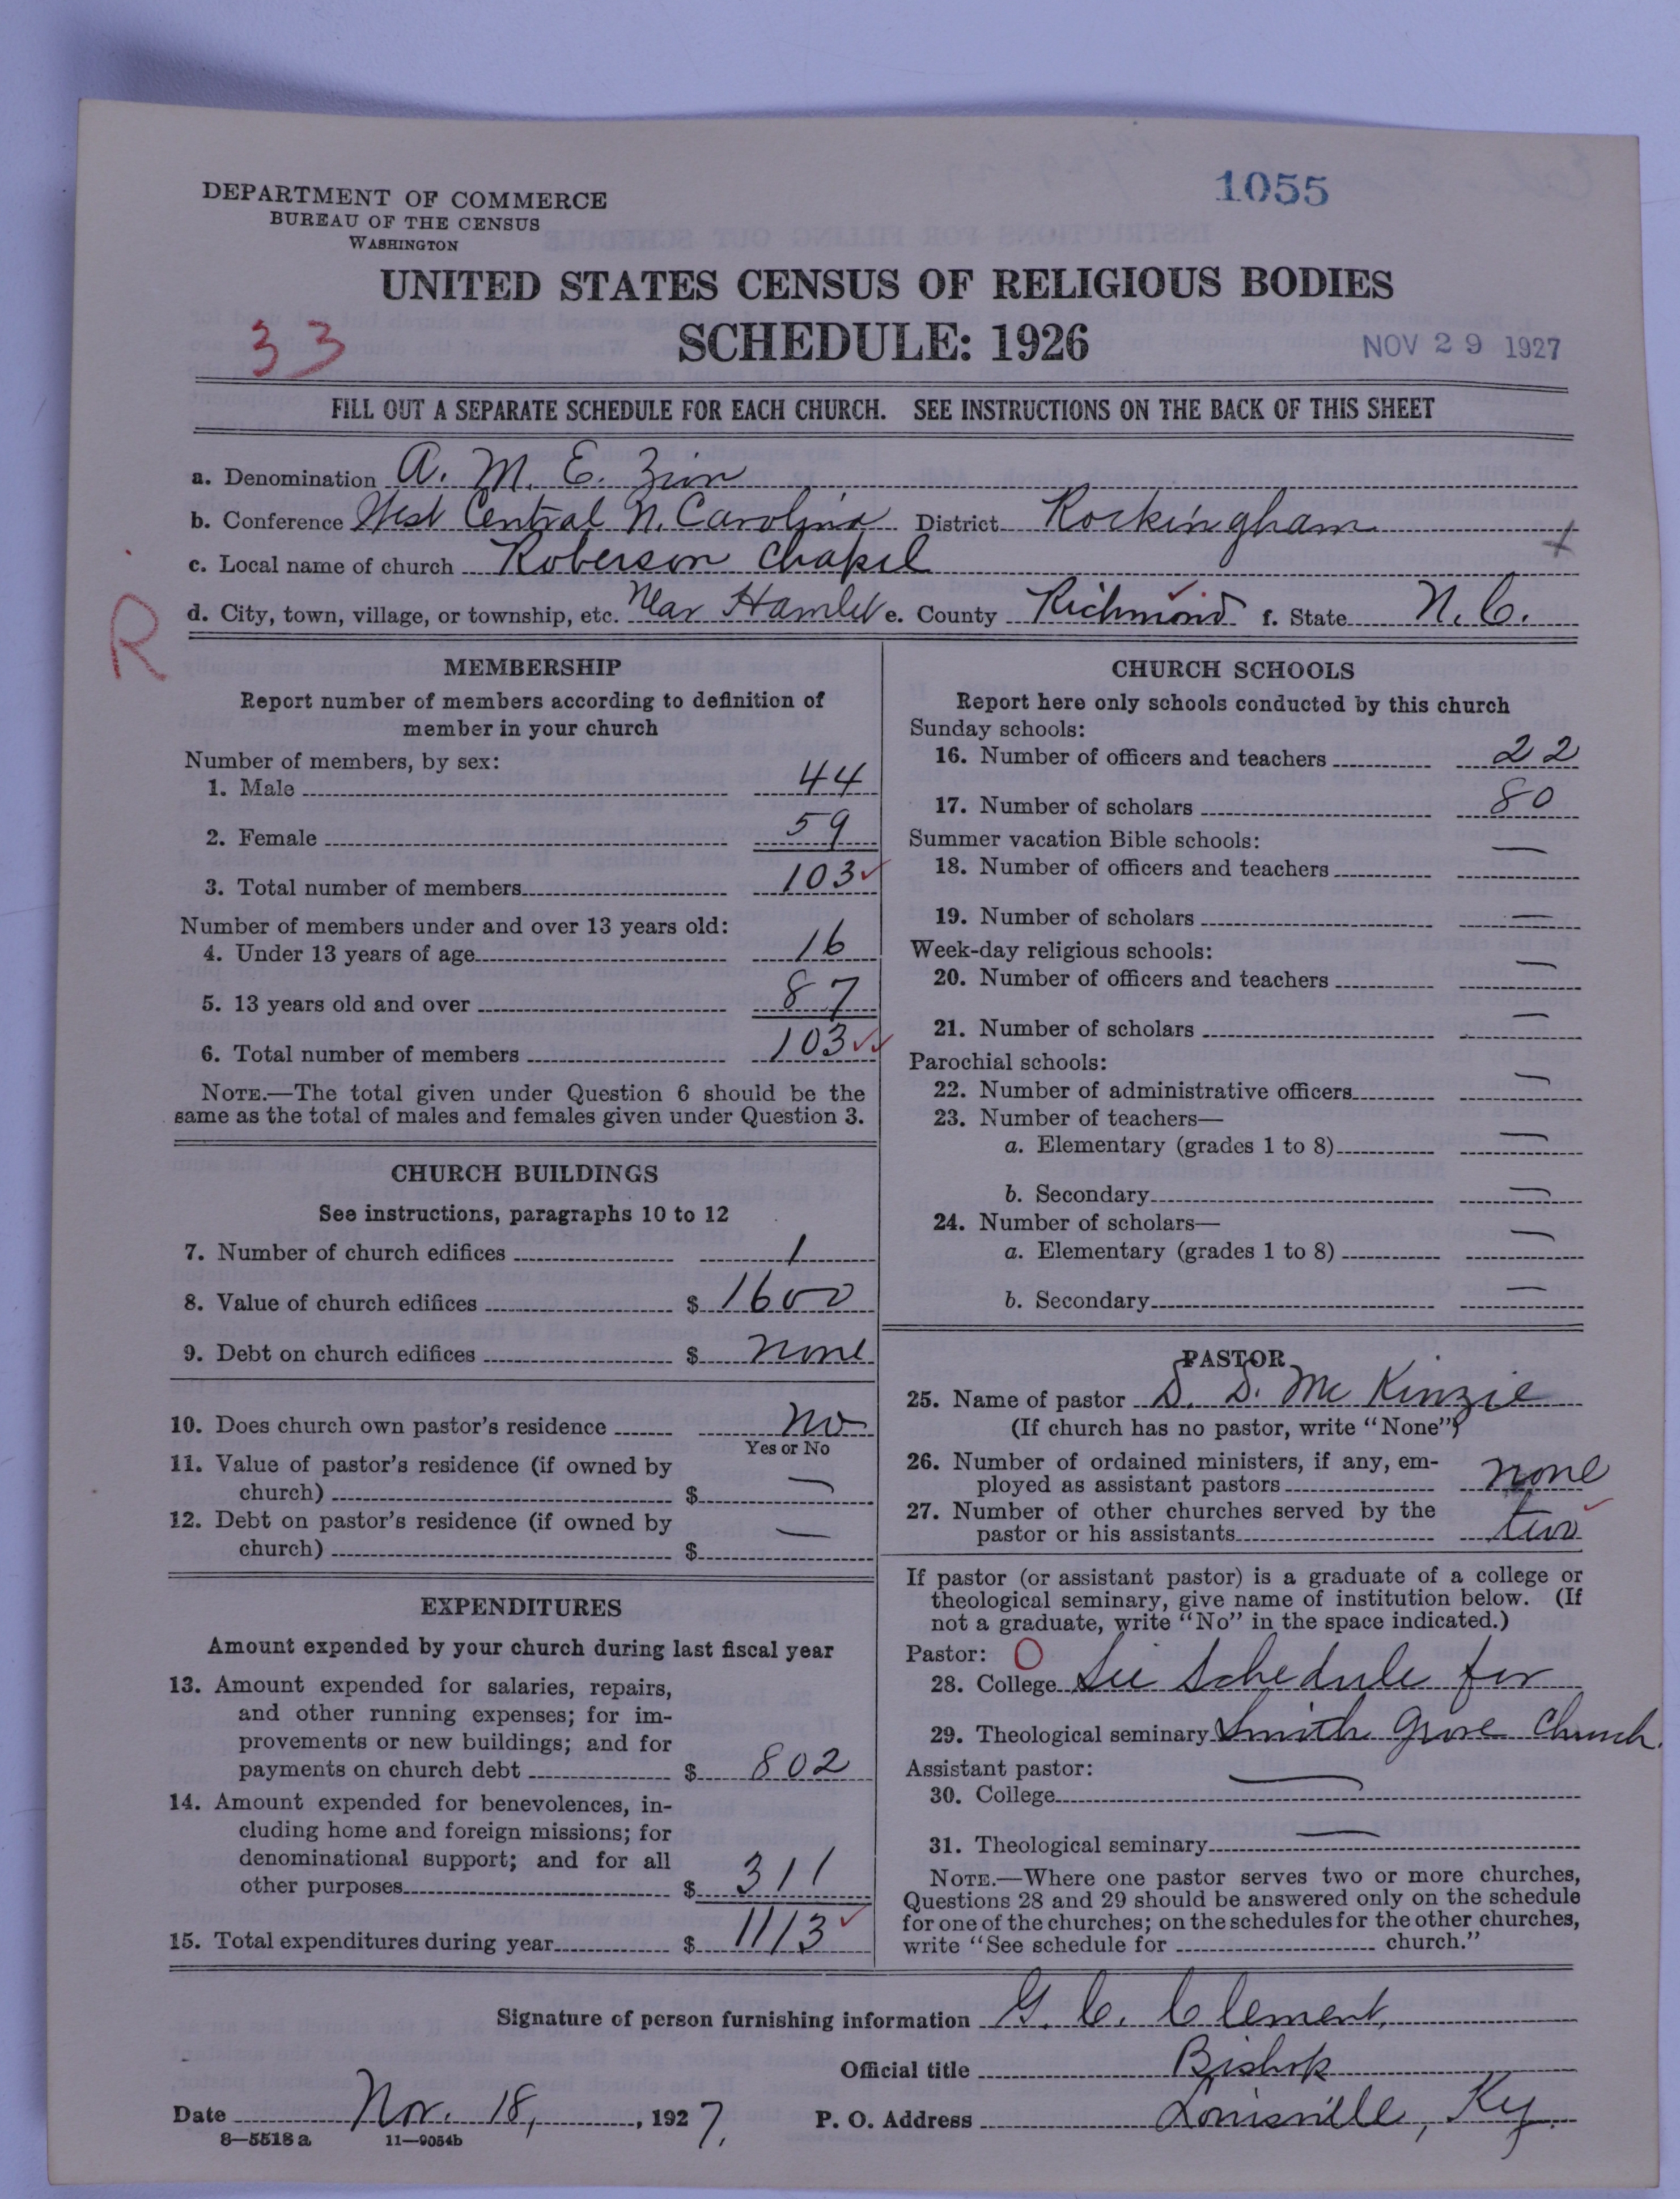 1055
DEPARTMENT OF COMMERCE
BUREAU OF THE CENSUS
WASHINGTON
UNITED STATES CENSUS OF RELIGIOUS BODIES
33
SCHEDULE: 1926
NOV 29 1927
FILL OUT A SEPARATE SCHEDULE FOR EACH CHURCH. SEE INSTRUCTIONS ON THE BACK OF THIS SHEET
a. Denomination A. M. E. Zion
b. Conference West Central N. Carolina District Rockingham
c. Local name of church Roberson Chapel
R
d. City, town, village, or township, etc. Near Hamlet e. County Richmond f. State N. C.
MEMBERSHIP
Report number of members according to definition of
member in your church
Number of members, by sex:
1. Male 44
2. Female 59
3. Total number of members 103 ✓
Number of members under and over 13 years old:
4. Under 13 years of age 16
5. 13 years old and over 87
6. Total number of members 103 ✓✓
NOTE.—The total given under Question 6 should be the
same as the total of males and females given under Question 3.
CHURCH BUILDINGS
See instructions, paragraphs 10 to 12
7. Number of church edifices 1
8. Value of church edifices $ 1600
9. Debt on church edifices $ none
10. Does church own pastor's residence no
Yes or No
11. Value of pastor's residence (if owned by
church) $ —
12. Debt on pastor's residence (if owned by
church) $ —
EXPENDITURES
Amount expended by your church during last fiscal year
13. Amount expended for salaries, repairs,
and other running expenses; for im-
provements or new buildings; and for
payments on church debt $ 802
14. Amount expended for benevolences, in-
cluding home and foreign missions; for
denominational support; and for all
other purposes $ 311
15. Total expenditures during year $ 1113 ✓
CHURCH SCHOOLS
Report here only schools conducted by this church
Sunday schools:
16. Number of officers and teachers 22
17. Number of scholars 80
Summer vacation Bible schools:
18. Number of officers and teachers —
19. Number of scholars —
Week-day religious schools:
20. Number of officers and teachers —
21. Number of scholars —
Parochial schools:
22. Number of administrative officers —
23. Number of teachers—
a. Elementary (grades 1 to 8) —
b. Secondary —
24. Number of scholars—
a. Elementary (grades 1 to 8) —
b. Secondary —
PASTOR
25. Name of pastor S. D. McKinzie
(If church has no pastor, write "None")
26. Number of ordained ministers, if any, em-
ployed as assistant pastors none
27. Number of other churches served by the
pastor or his assistants two ✓
If pastor (or assistant pastor) is a graduate of a college or
theological seminary, give name of institution below. (If
not a graduate, write "No" in the space indicated.)
Pastor: O
28. College See Schedule for
29. Theological seminary Smith Grove Church.
Assistant pastor:
30. College —
31. Theological seminary —
NOTE.—Where one pastor serves two or more churches,
Questions 28 and 29 should be answered only on the schedule
for one of the churches; on the schedules for the other churches,
write "See schedule for church."
Signature of person furnishing information G. C. Clement,
Official title Bishop
Date Nov. 18, , 1927. P. O. Address Louisville, Ky.
8—5518 a 11—9054b